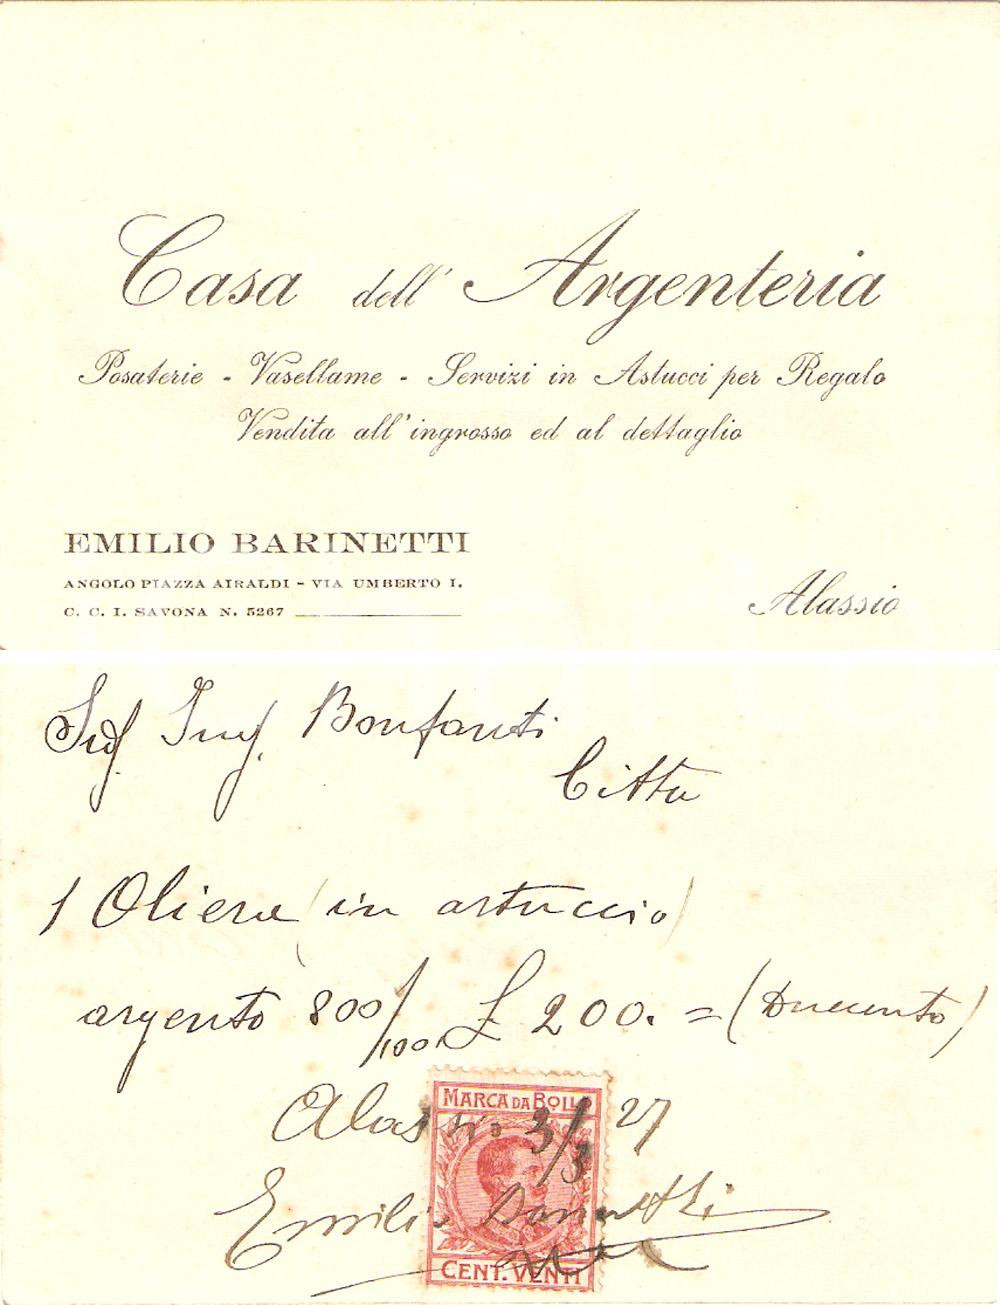 Casa dell' Argenteria
Posaterie - Vasellame - Servizi in Astucci per Regalo
Vendita all'ingrosso ed al dettaglio
EMILIO BARINETTI
ANGOLO PIAZZA AIRALDI - VIA UMBERTO I.
C. C. I. SAVONA N. 5267
Alassio
Sig. Ing. Bonfanti
Città
1 Oliera (in astuccio)
argento 800/100 £ 200. = (Duecento)
MARCA DA BOLLO
Alassio 3/3 27
Emilio Barinetti
CENT. VENTI